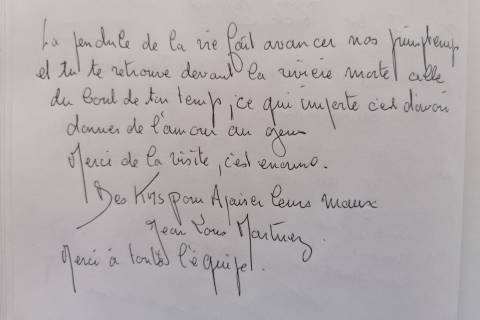 La pendule de la vie fait avancer nos printemps
et tu te retrouve devant la rivière mortel celle
du bout de ton temps, ce qui importe c'est d'avoir
donner de l'amour au gens
Merci de la visite, c'est enorme.
Des Kms pour Apaiser Leurs maux
Jean Louis Martinez
Merci à toute l'équipe.